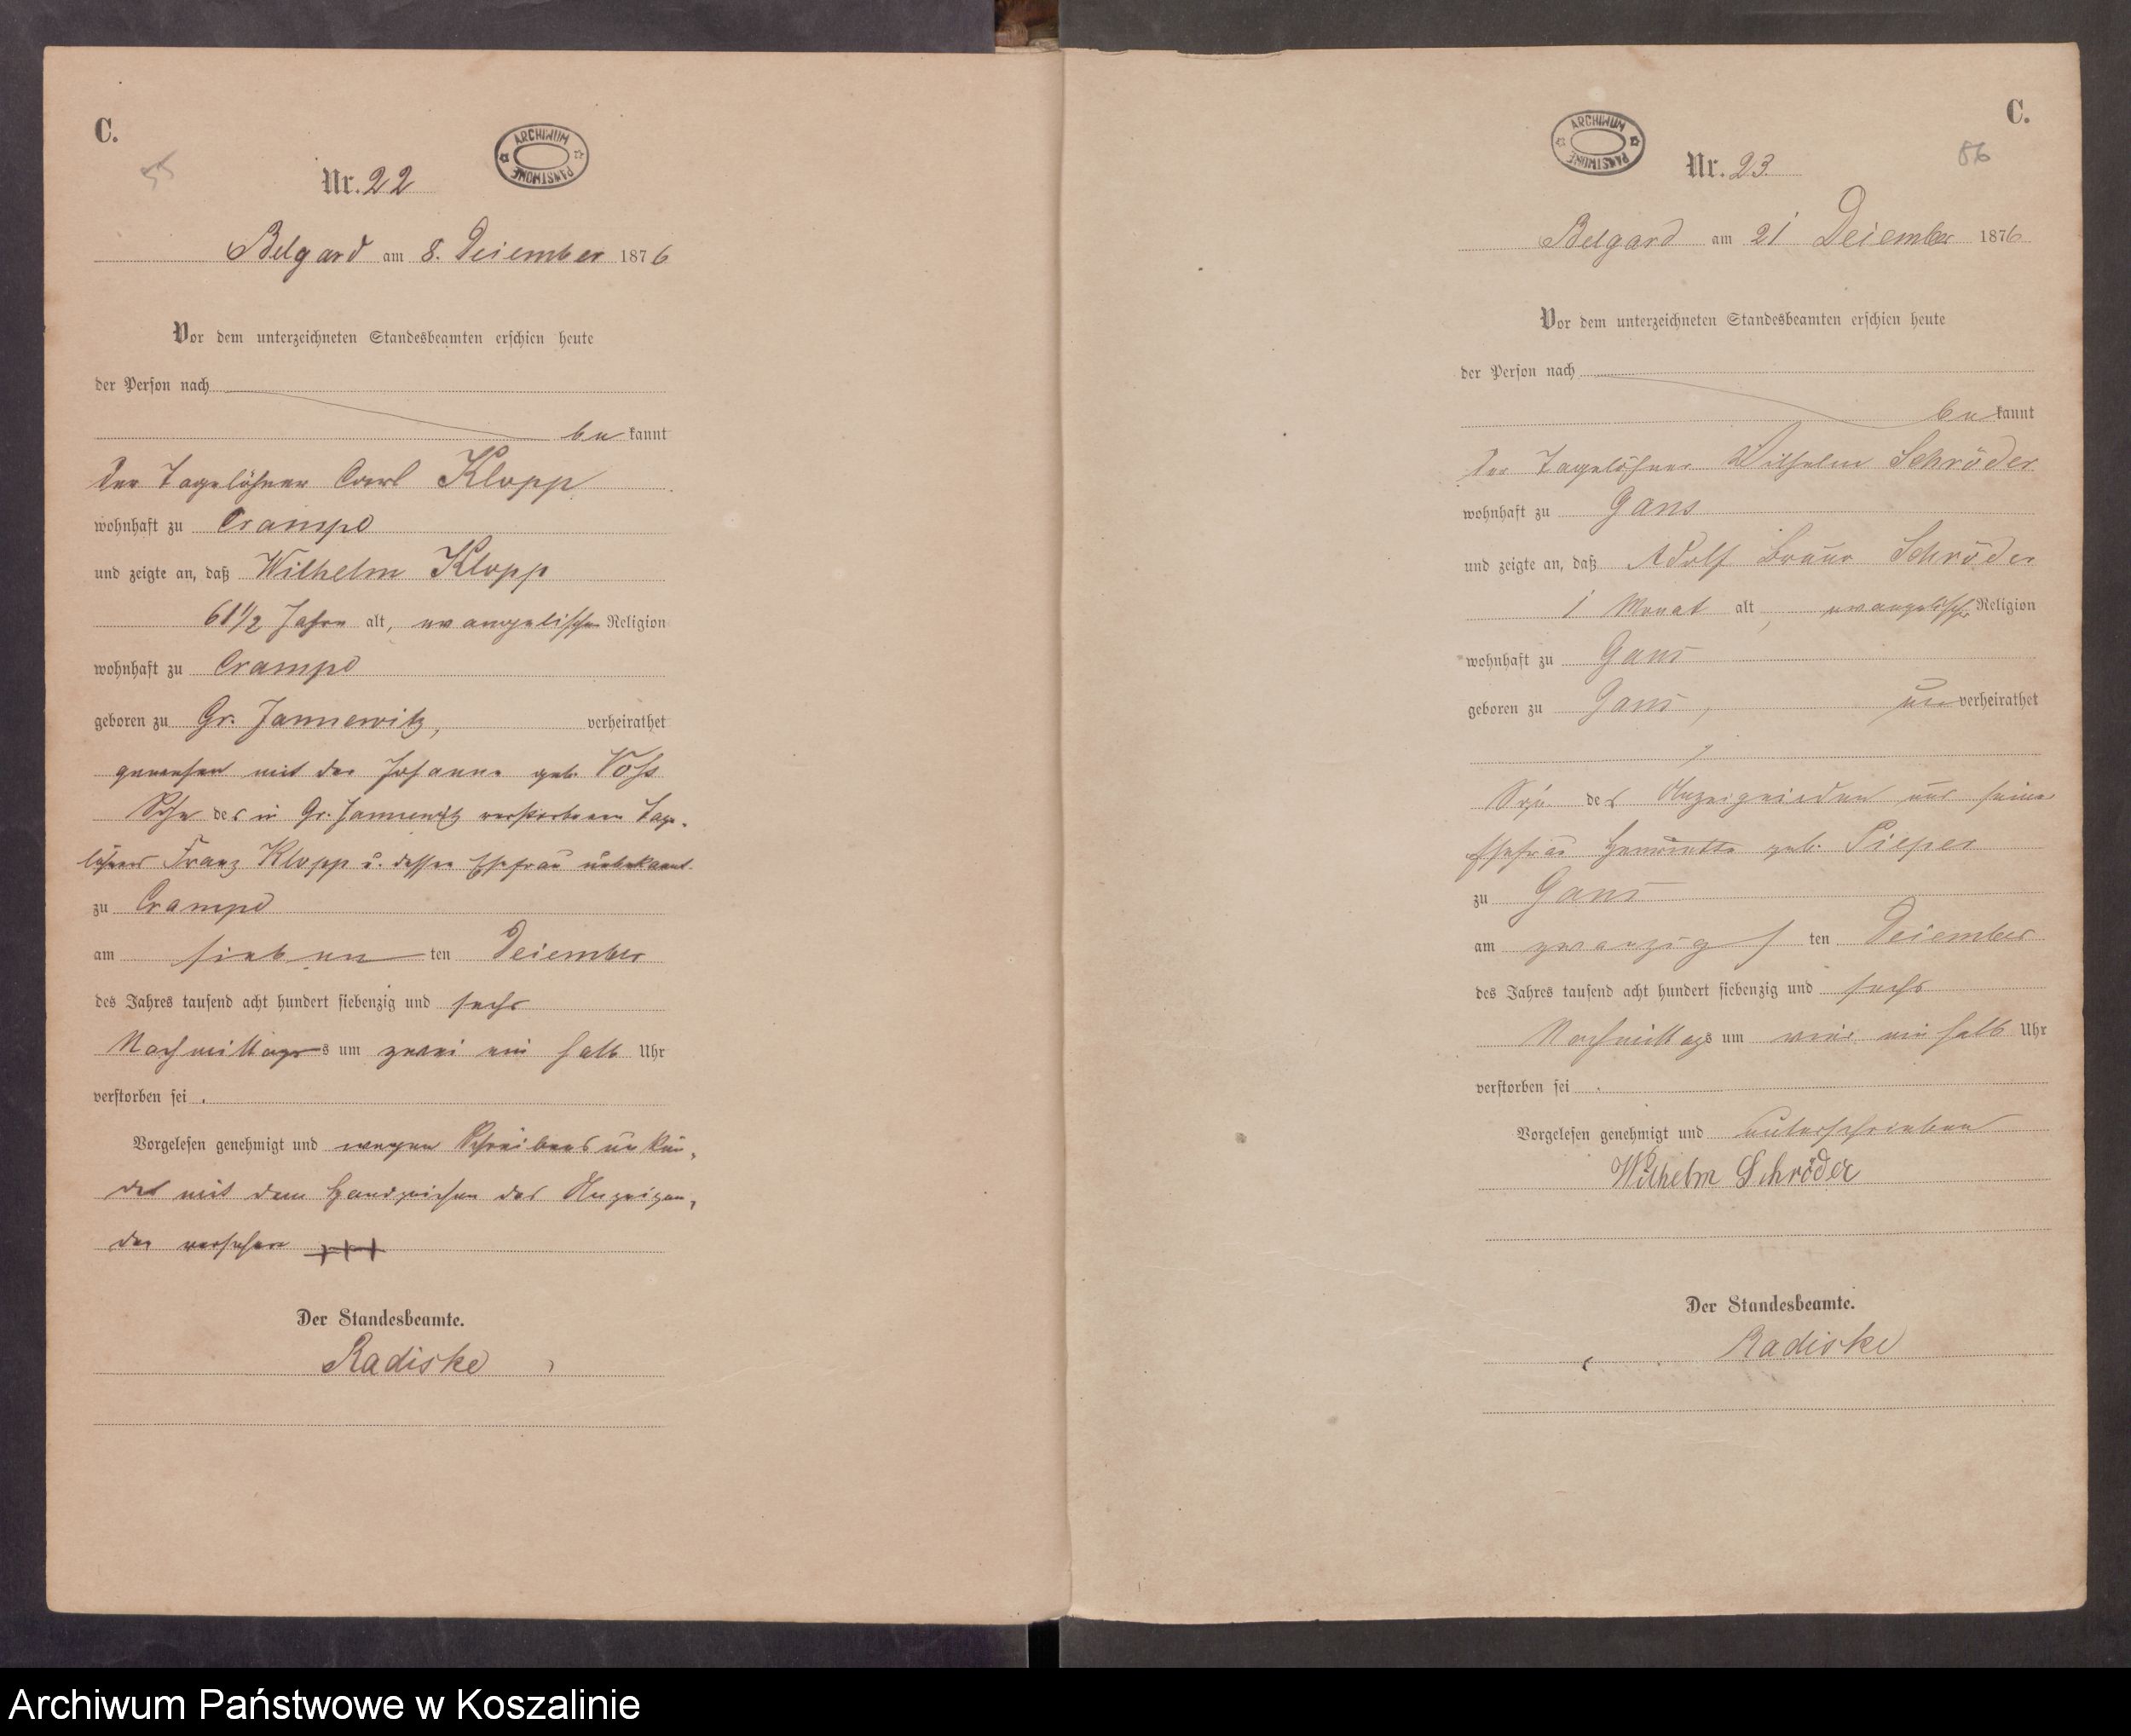 C.
55
Nr. 22
ARCHIWUM PAŃSTWOWE
Belgard am 8. Dezember 1876
Vor dem unterzeichneten Standesbeamten erschien heute
der Person nach
be kannt
der Tagelöhner Carl Klopp
wohnhaft zu Crampe
und zeigte an, daß Wilhelm Klopp
61 1/2 Jahre alt, evangelischer Religion
wohnhaft zu Crampe
geboren zu Gr. Jannewitz, verheirathet
gewesen mit der Johanne geb. Voss
Sohn des in Gr. Jannewitz verstorbenen Tage-
löhners Franz Klopp u. dessen Ehefrau unbekannt.
zu Crampe
am sieben ten Dezember
des Jahres tausend acht hundert siebenzig und sechs
Nachmittags um zwei ein halb Uhr
verstorben sei .
Vorgelesen genehmigt und wegen Schreibens unkun-
de mit dem Handzeichen des Anzeigen-
den versehen +++
Der Standesbeamte.
Radiske
C.
56
ARCHIWUM PAŃSTWOWE
Nr. 23.
Belgard am 21 Dezember 1876
Vor dem unterzeichneten Standesbeamten erschien heute
der Person nach
be kannt
der Tagelöhner Wilhelm Schröder
wohnhaft zu Gans
und zeigte an, daß Adolf Bruno Schröder
1 Monat alt, evangelischer Religion
wohnhaft zu Gans
geboren zu Gans, un verheirathet
Sohn des Anzeigenden und seiner
Ehefrau Henriette geb. Pieper
zu Gans
am zwanzigs ten Dezember
des Jahres tausend acht hundert siebenzig und sechs
Nachmittags um ein halb Uhr
verstorben sei .
Vorgelesen genehmigt und unterschrieben
Wilhelm Schröder
Der Standesbeamte.
Radiske
Archiwum Państwowe w Koszalinie